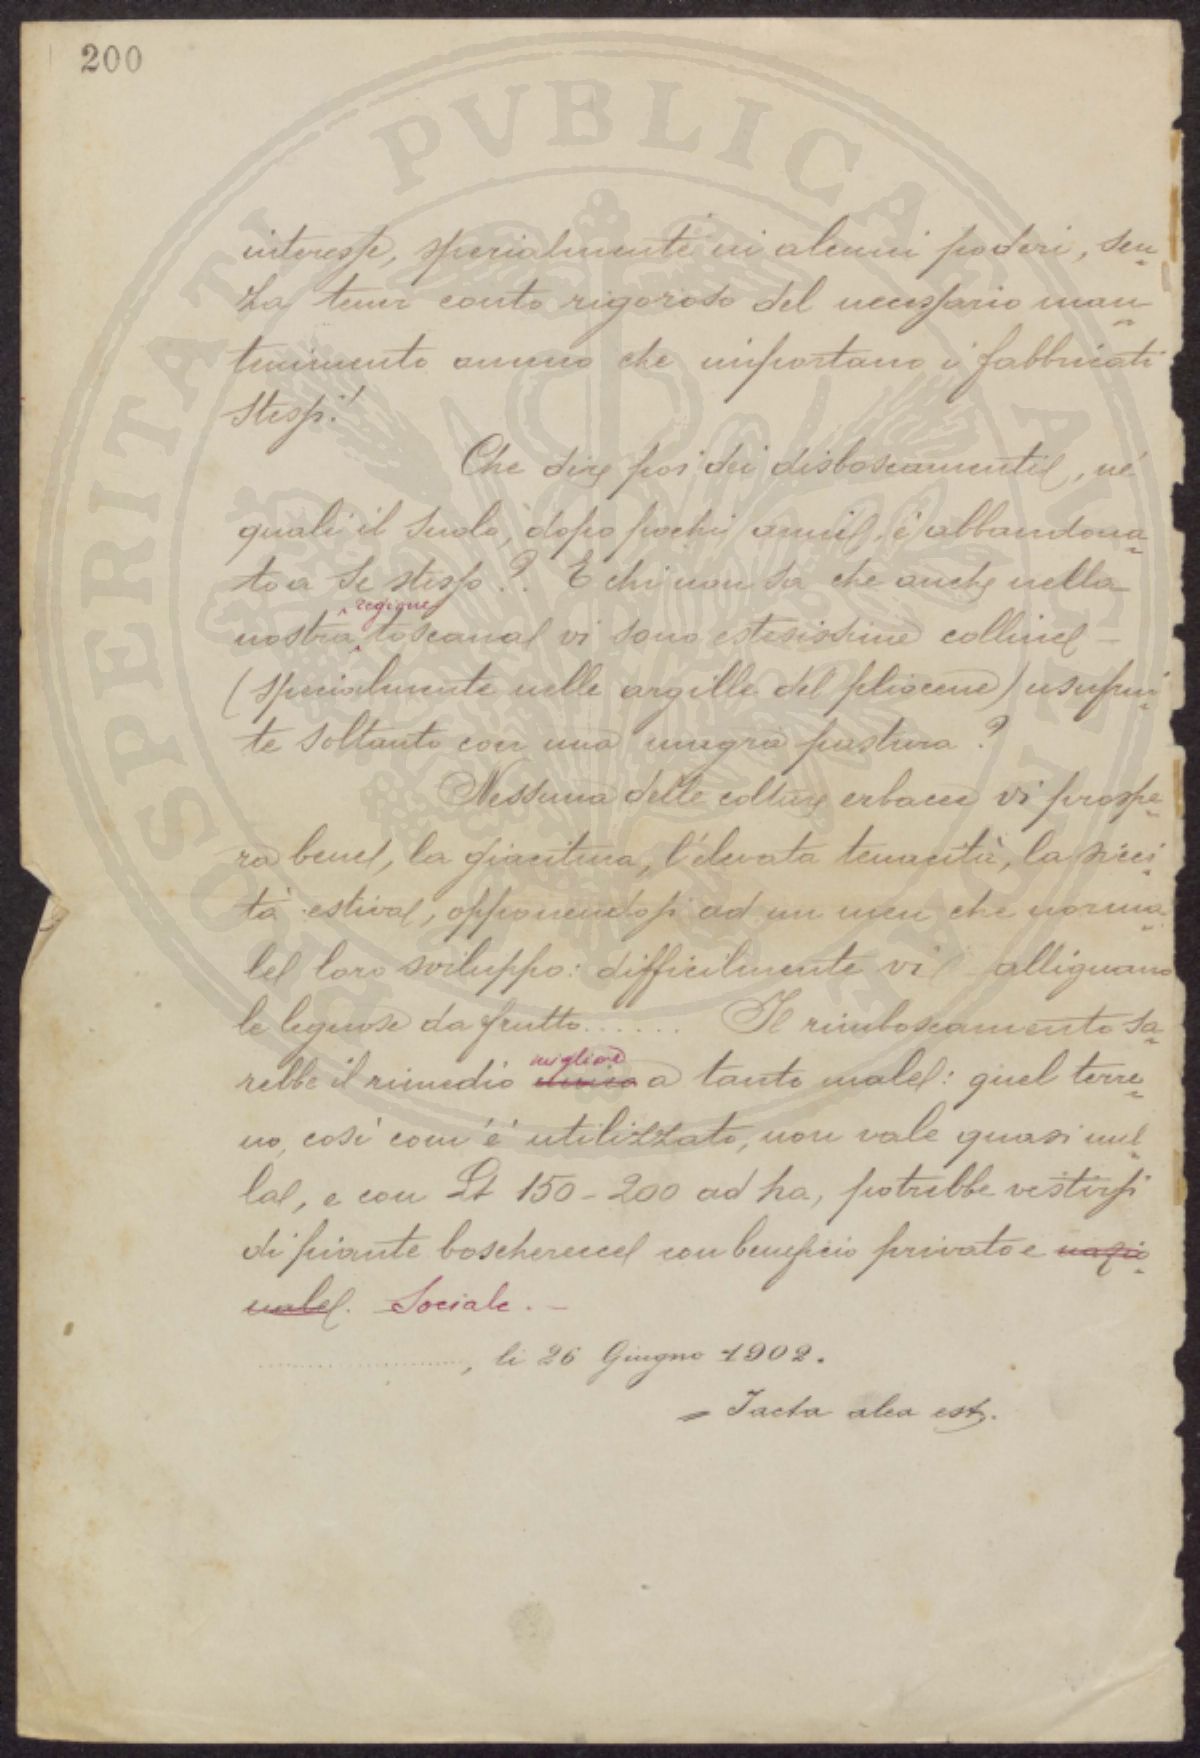 200
interesse, specialmente in alcuni poderi, sen-
za tener conto rigoroso del necessario man-
tenimento annuo che importano i fabbricati
stessi!
Che dire poi dei disboscamenti, ne'
quali il suolo, dopo pochi anni, è abbandona-
to a se stesso? E chi non sa che anche nella
regione
nostra toscana vi sono estesissime colline
(specialmente nelle argille del pliocene) usufrui-
te soltanto con una magra pastura?
Nessuna delle colture erbacee vi prospe-
ra bene, la giacitura, l'elevata tenacità, la sicci-
tà estiva, opponendosi ad un men che norma-
le loro sviluppo: difficilmente vi allignano
le legnose da frutto...... Il rimboscamento sa-
migliore
rebbe il rimedio unico a tanto male: quel terre-
no, così com'è utilizzato, non vale quasi nul-
la, e con Lt 150-200 ad ha, potrebbe vestirsi
di piante boscherecce con beneficio privato e nazio-
nale. Sociale. -
...................., li 26 Giugno 1902.
= Jacta alea est.
PROSPERITATI PVBLICAE AVGENDAE